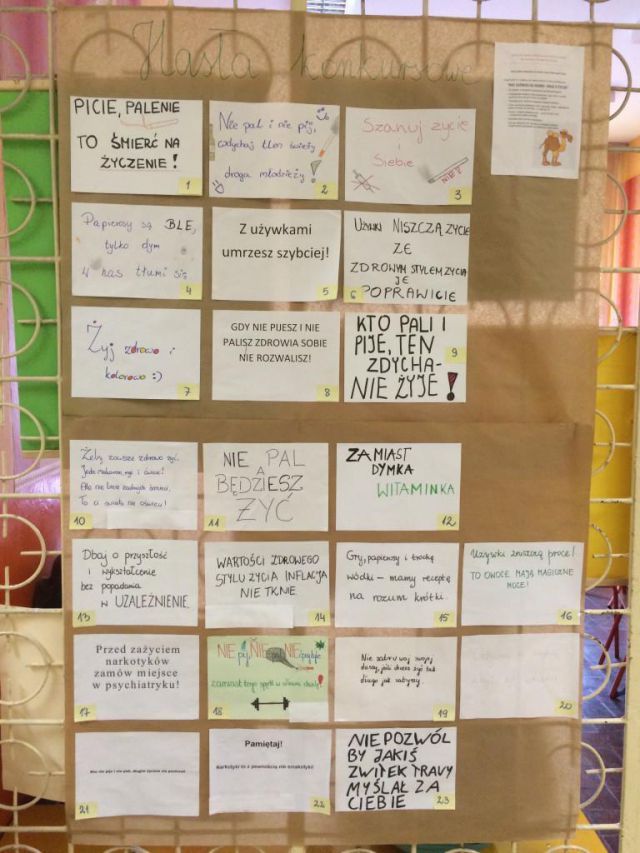 Hasła konkursowe
PICIE, PALENIE
TO ŚMIERĆ NA
ŻYCZENIE!
1
Nie pal i nie pij,
oddychaj tlen świeży
droga młodzieży!
2
Szanuj życie
i
Siebie
NIE!
3
Papierosy są BLE,
tylko dym
w nas tłumi się
4
Z używkami
umrzesz szybciej!
5
UŻYWKI NISZCZĄ ŻYCIE
ZE
ZDROWYM STYLEM ŻYCIA
JE
POPRAWICIE
6
Żyj zdrowo i
kolorowo :)
7
GDY NIE PIJESZ I NIE
PALISZ ZDROWIA SOBIE
NIE ROZWALISZ!
8
KTO PALI I
PIJE, TEN
ZDYCHA-
NIE ŻYJE!
9
Żeby zawsze zdrowo żyć,
10
NIE PAL
A
BĘDZIESZ
ŻYĆ
11
ZAMIAST
DYMKA
WITAMINKA
12
Dbaj o przyszłość
i wykształcenie
bez popadania
w UZALEŻNIENIE.
13
WARTOŚCI ZDROWEGO
STYLU ŻYCIA INFLACJA
NIE TKNIE
14
Gry, papierosy i trochę
wódki – mamy receptę
na rozum krótki
15
Używki zniszczą płuca!
TO OWOCE MAJĄ MAGICZNE
MOCE!
16
Przed zażyciem
narkotyków
zamów miejsce
w psychiatryku!
17
NIE pij, NIE NIE
zamiast tego
18
Nie zatruwaj swojej
duszy, jeśli chcesz żyć tak
długo jak
19
20
21
Pamiętaj!
Narkotyki to z pewnością nie
22
NIE POZWÓL
BY JAKIŚ
ZWITEK TRAWY
MYŚLAŁ ZA
CIEBIE
23